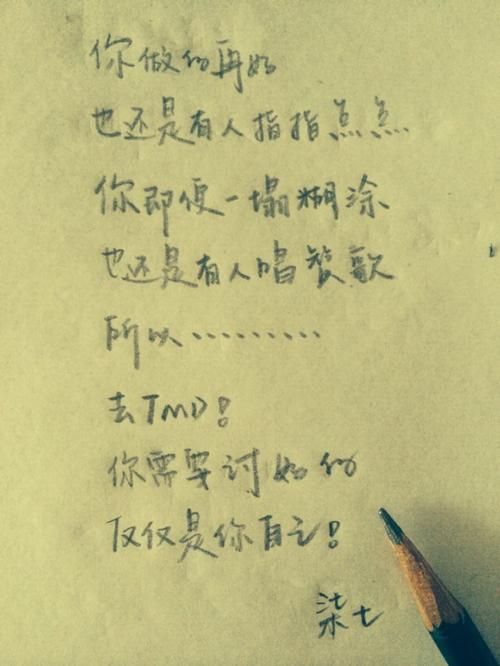 你做的再好
也还是有人指指点点
你即便一塌糊涂
也还是有人唱赞歌
所以………
去TMD!
你需要讨好的
仅仅是你自己!
柒七